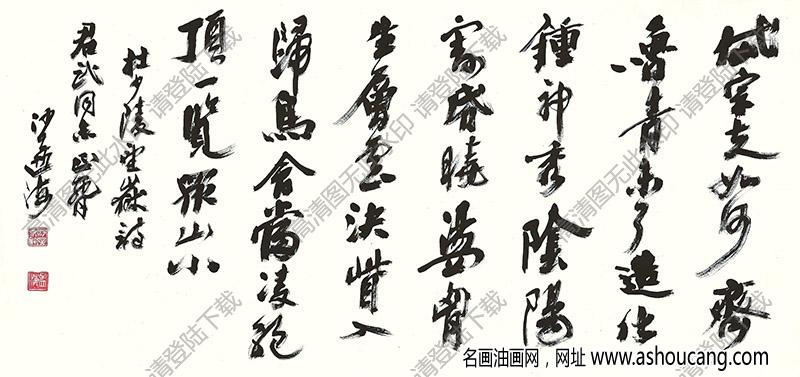 岱宗夫如何齊
魯青未了造化
鍾神秀陰陽
割昏曉盪胷
生層雲決眥入
歸鳥會當凌絕
頂一覽眾山小
杜少陵望嶽詩
君武同志正
沙孟海
高清图无此水印 请登陆下载
名画油画网，网址 www.ashoucang.com